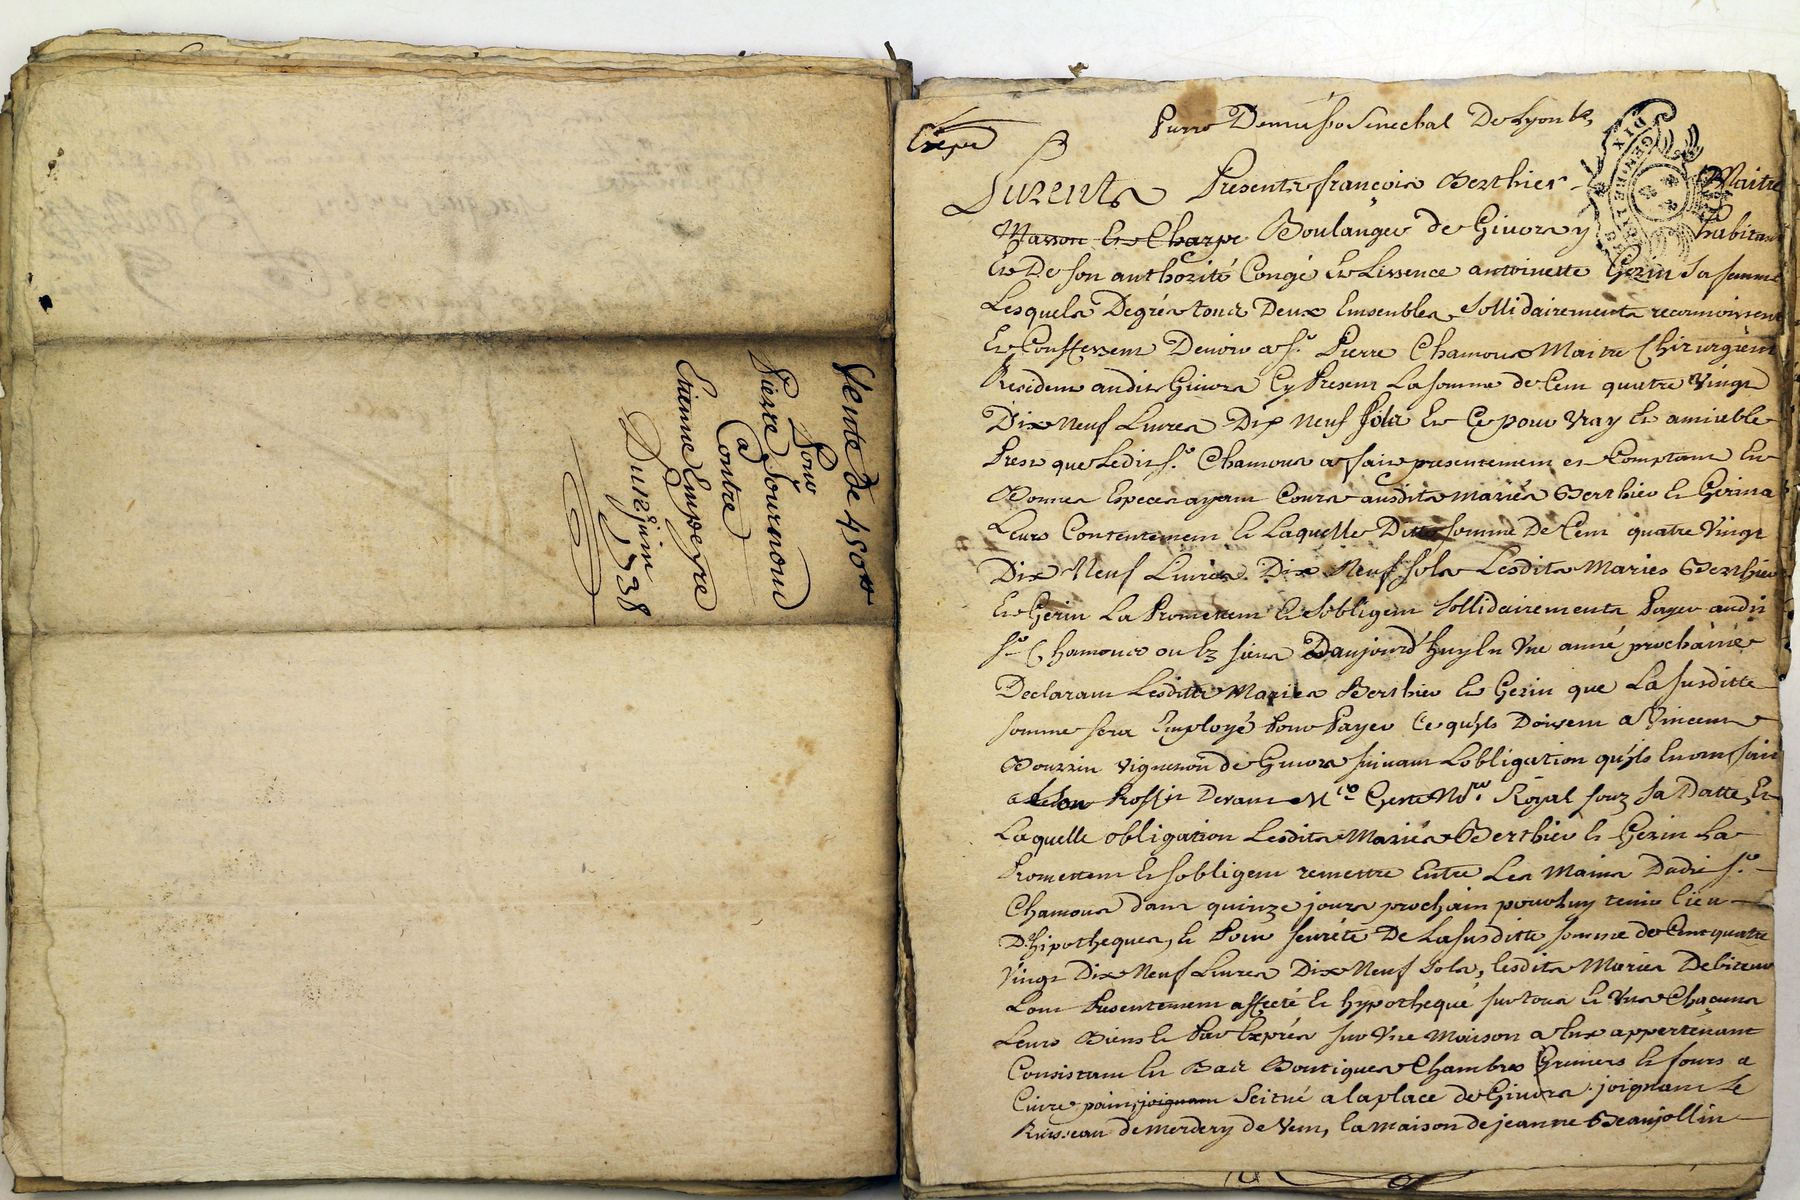 Vente de 450tt
Pour
Pierre Journoud
Contre
Etienne Empeyre
Du 12e juin 1738
Expé
Senechal De Lyon
Furent Presents françois Berthier Maitre
Masson Et Charpe Boulanger de Givors y habitant
Et De son authorité Congé Et Lissence antoinette Gerin Sa femme
Lesquels Degrés tous Deux Emsembles Sollidairements reconnoissent
Et Conffessent Devoir a Sr. Pierre Chamous Maitre Chirurgien
Resident audit Givors Cy Present La somme de Cent quatre Vingt
Dix Neuf Livres Dix Neuf sols Et Ce pour Vray Et amiable
Prest que Ledit Sr. Chamous a fait presentement en Comptant En
Bonnes Especes ayant Cours ausdits mariés Berthier Et Gerin a
Leurs Contentement Et Laquelle Ditte somme De Cent quatre Vingt
Dix Neuf Livres Dix Neuf sols Lesdits Mariés Berthier
Et Gerin La Promettent Et Sobligent Sollidairements Payer audit
Sr Chamous ou Es siens Daujourd'huy En Une année prochaine
Declarant Lesdits Mariés Berthier Et Gerin que La susditte
somme sera Employé Pour Payer Ce qu'ils Doivent a Vincent
Bourrin Vigneron de Givors suivant Lobligation qu'ils En ont fait
a Son Proffit Devant Me Nore. Royal souz Sa Datte, Et
Laquelle obligation Lesdits Mariés Berthier Et Gerin La
Promettent Et sobligent remettre Entre Les Mains Dudit Sr.
Chamous dans quinze jours prochain pour luy tenir lieu
D'hipotheques, Et Pour seureté De La susditte somme de Cent quatre
Vingt Dix Neuf Livres Dix Neuf Sols, lesdits Mariés Debiteurs
Lont Presentement affecté Et hypothequé sur tous Et Uns Chacuns
Leurs Biens Et Par Exprés sur Une Maison a Eux appertenant
Consistant En Bas Boutiques Chambres Greniers Et fours a
Cuire pain, joignant Scitué a la place de Givors joignant Le
Ruisseau de merdery de Vent, La maison de jeanne Beaujollin